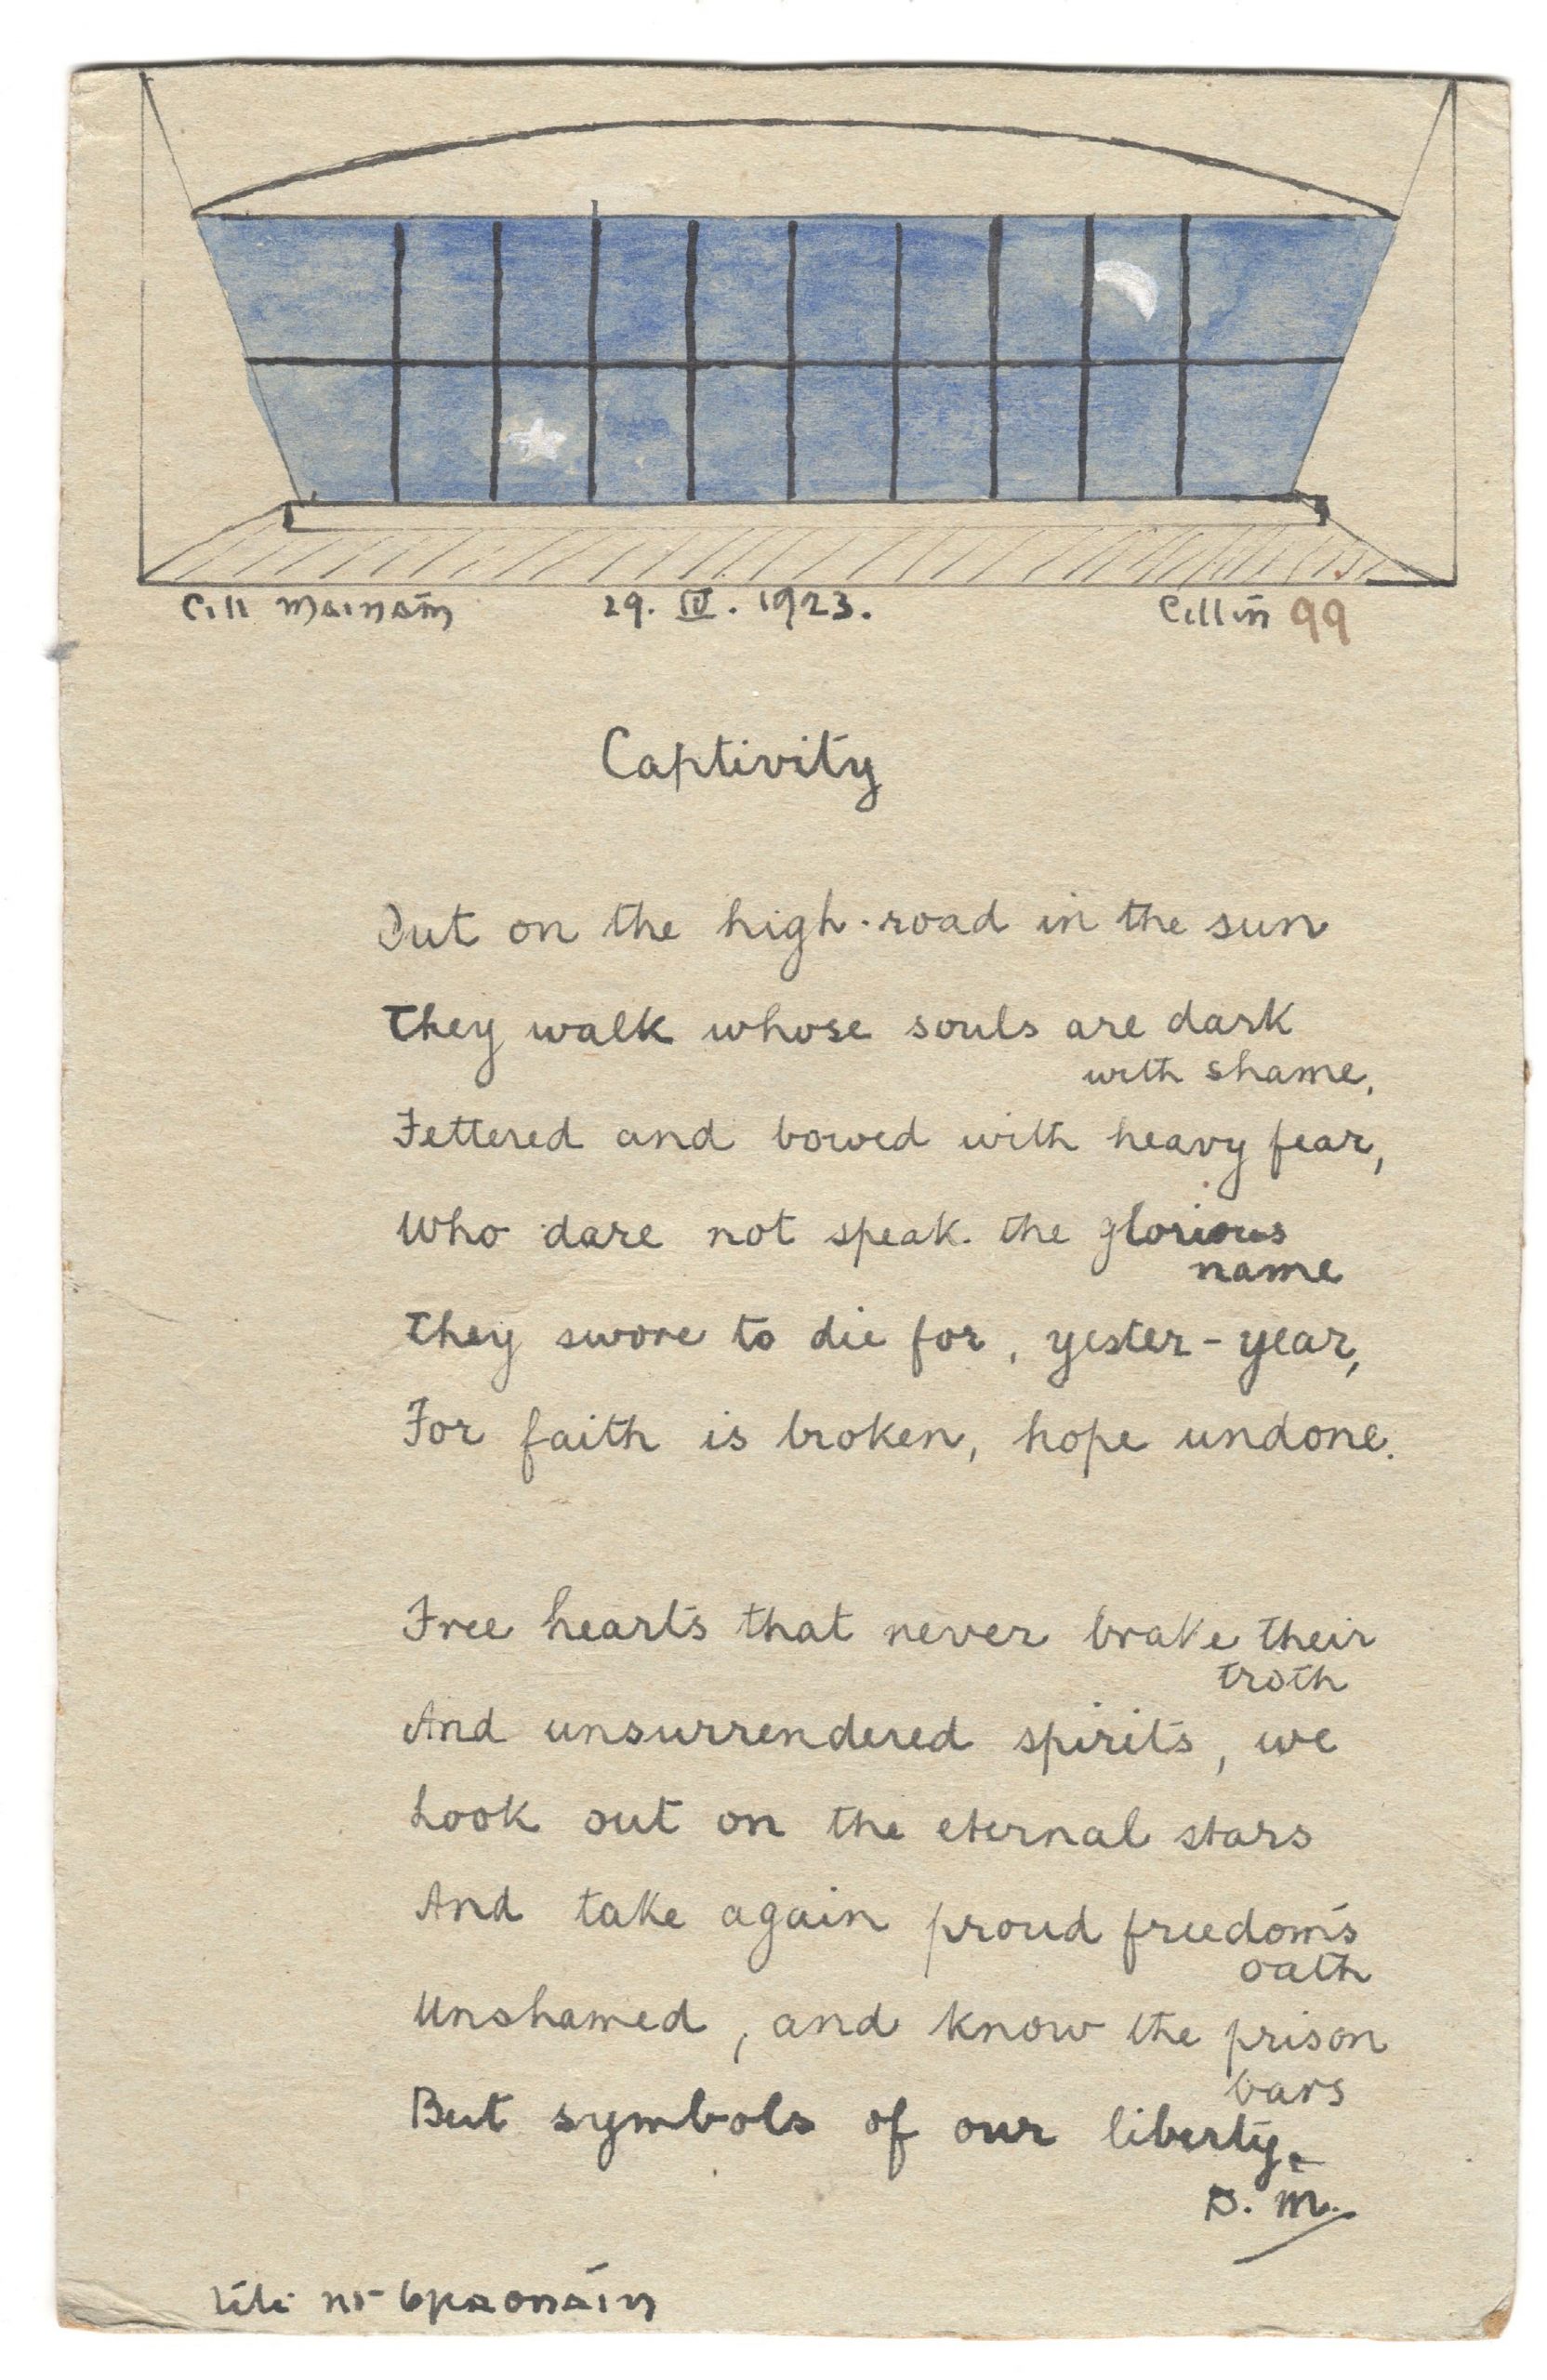 Cill Maināin 29. IV. 1923. Cillín 99
Captivity
Out on the high-road in the sun
They walk whose souls are dark
with shame,
Fettered and bowed with heavy fear,
Who dare not speak the glorious
name
They swore to die for, yester-year,
For faith is broken, hope undone.
Free hearts that never brake their
troth
And unsurrendered spirits, we
Look out on the eternal stars
And take again proud freedom's
oath
Unshamed, and know the prison
bars
But symbols of our liberty.
D. M.
Lílí ní bhraonáin